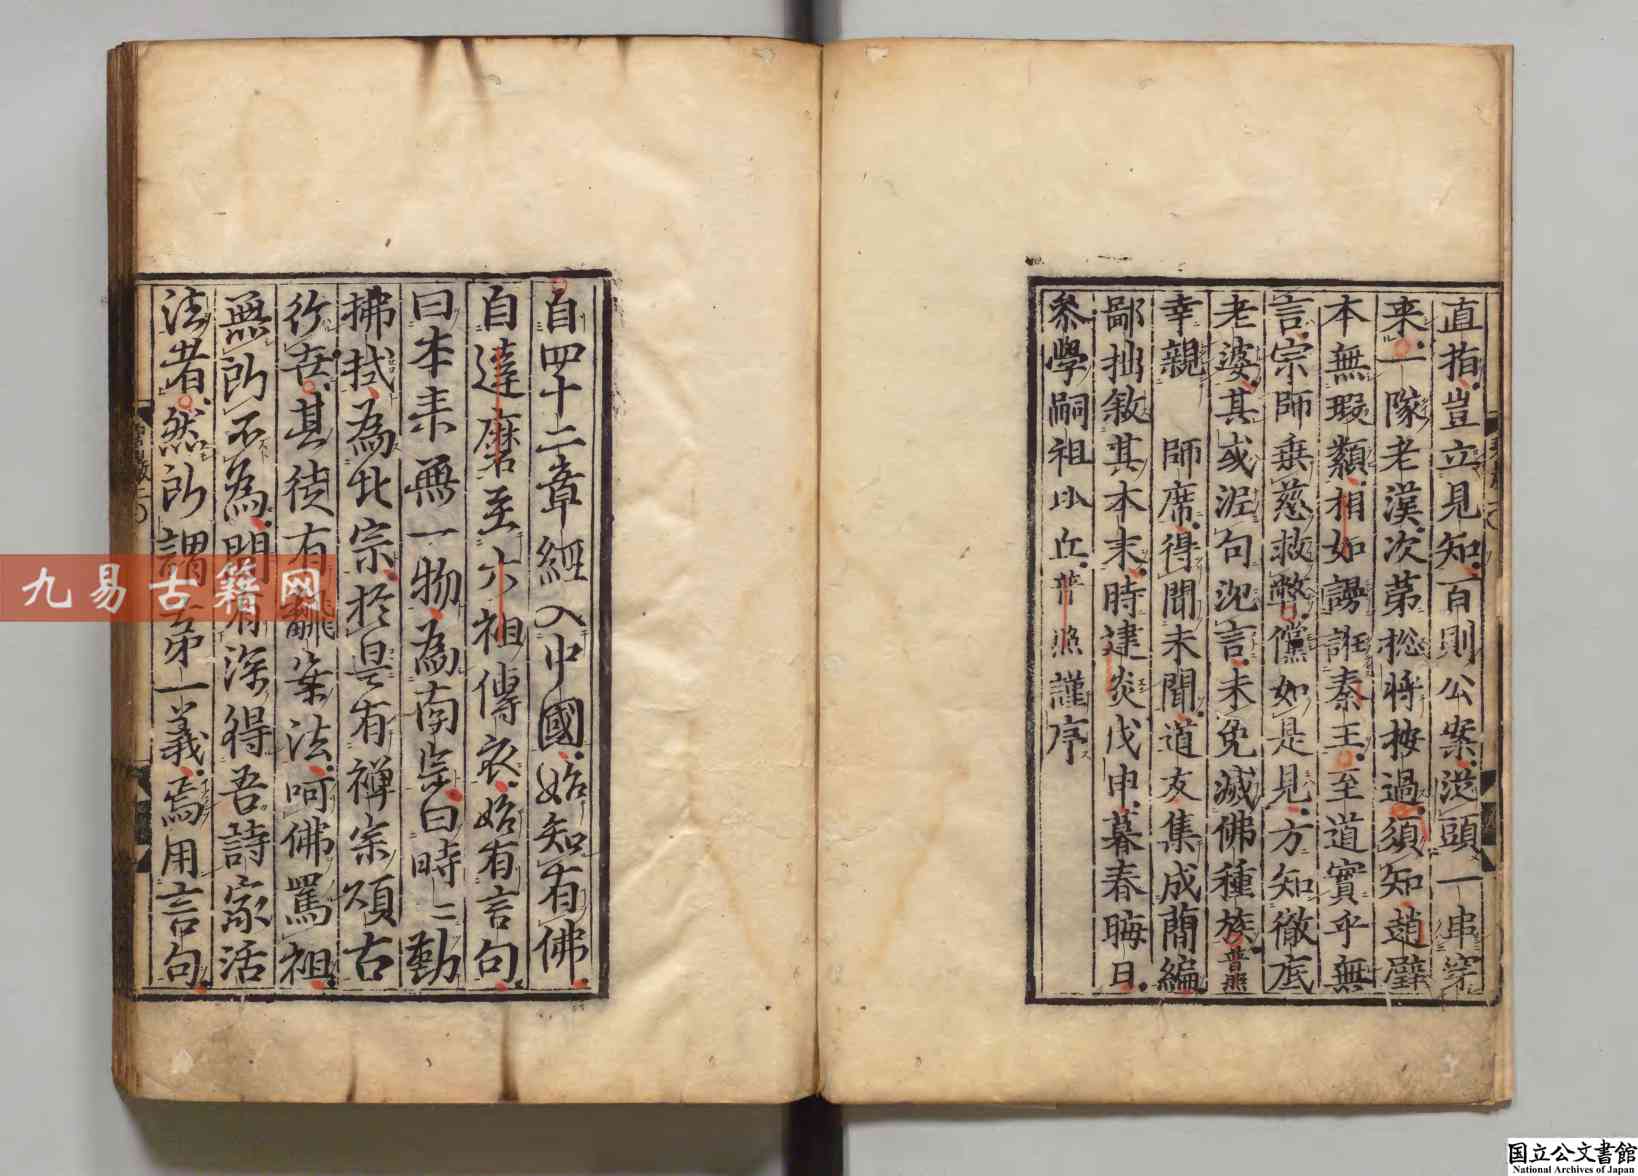 直指豈立見知百則公案從頭一串穿
來一隊老漢次第揔將按過須知趙璧
本無瑕纇相如謾誑秦王至道實乎無
言宗師乗慈救敝儻如是見方知徹底
老婆其或泥句沈言未免滅佛種族普照
幸親　師席得聞未聞道友集成簡編
鄙拙敘其本末時建炎戊申暮春晦日
叅學嗣祖比丘普照謹序
自四十二章經入中國始知有佛
自達磨至六祖傳衣始有言句
曰本来無一物為南宗曰時〻勤
拂拭為北宗於是有禅宗頌古
行世其徒有翻案法呵佛罵祖
無所不為間有深得吾詩家活
法者然所謂第一義焉用言句
九易古籍网
国立公文書館
National Archives of Japan